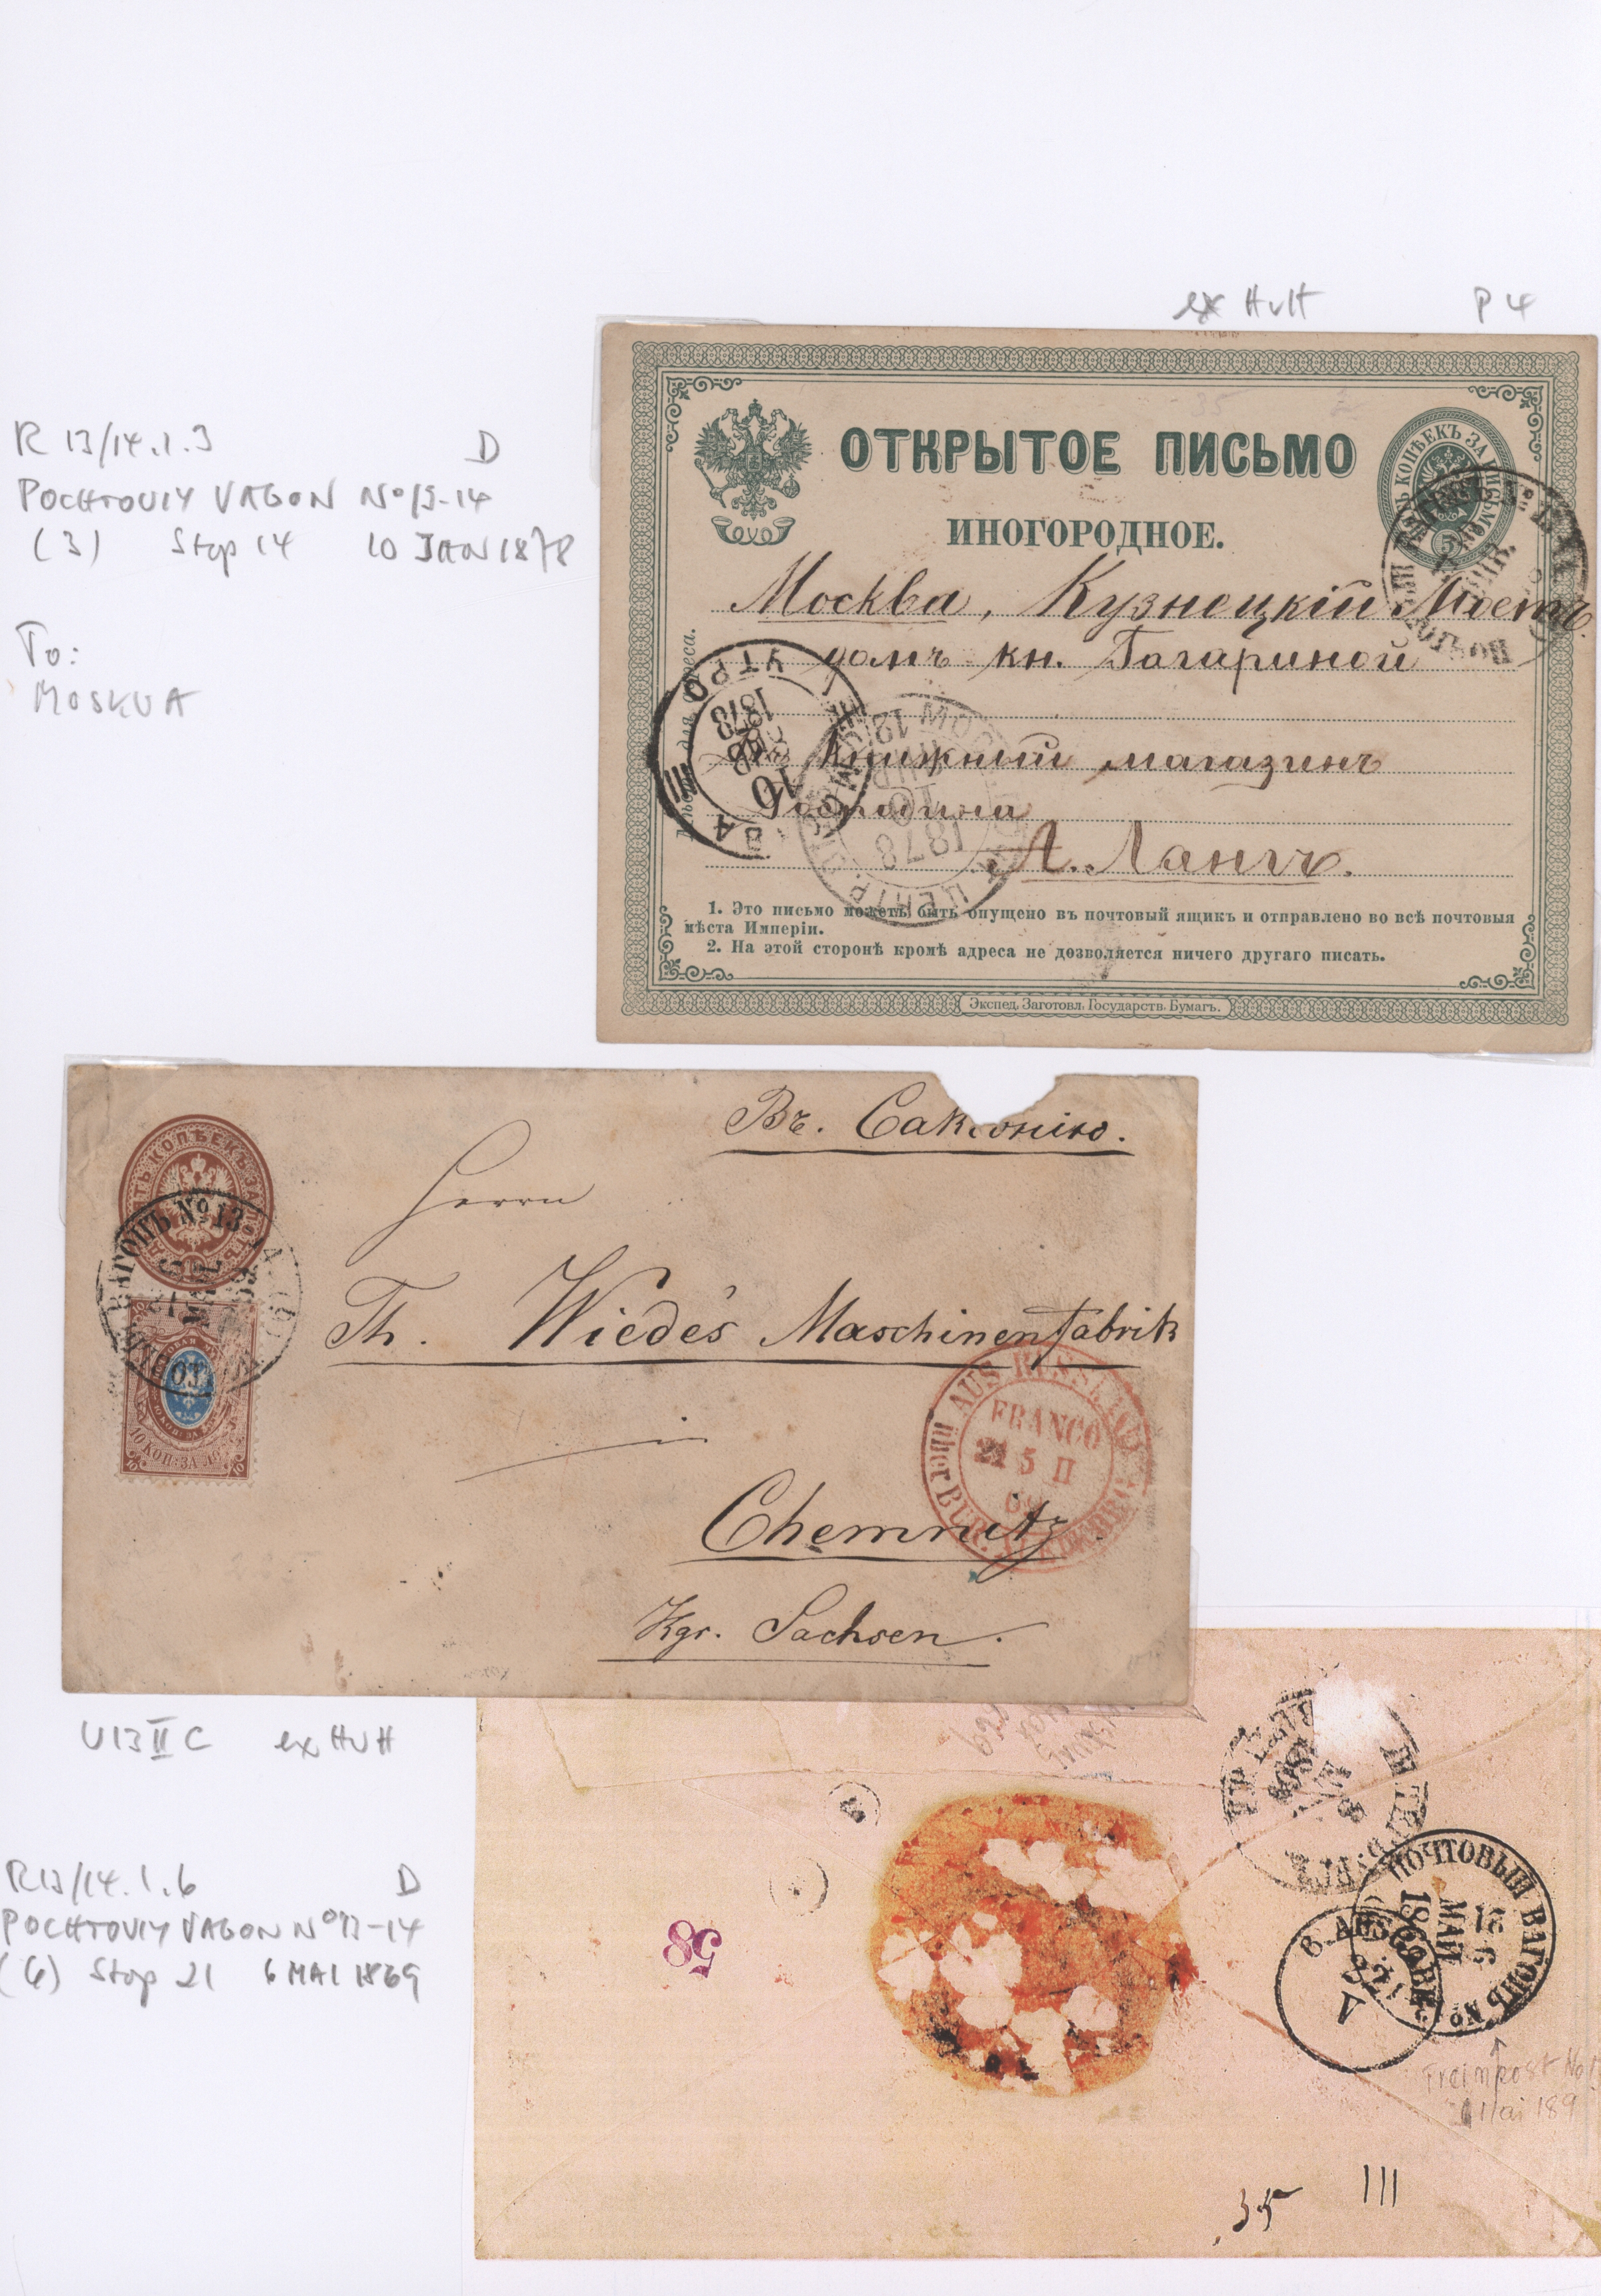 ex HvH P 4
R 13/14.1.3 D
POCHTOVIY VAGON No 13-14
(3) Stop 14 10 JAN 1878
To:
MOSKVA
ОТКРЫТОЕ ПИСЬМО
ИНОГОРОДНОЕ.
Москва, Кузнецкій Мостъ
домъ кн. Гагариной
Книжный магазинъ
Господина
А. Лангъ.
1. Это письмо можетъ быть опущено въ почтовый ящикъ и отправлено во всѣ почтовыя
мѣста Имперіи.
2. На этой сторонѣ кромѣ адреса не дозволяется ничего другаго писать.
Экспед. Заготовл. Государств. Бумагъ.
УТРО
1878
10
III
1878
Въ Саксонію.
Herrn
Th. Wiede's Maschinenfabrik
in
Chemnitz.
Kgr. Sachsen.
ВАГОНЪ № 13
10 КОП: ЗА ЛОТЪ
AUS RUSSLAND
FRANCO
5 II
über
U 13 II C ex HvH
R 13/14.1.6 D
POCHTOVIY VAGON No 13-14
(6) Stop 21 6 MAI 1869
ПОЧТОВЫЙ ВАГОНЪ №
МАЯ
58
35 III